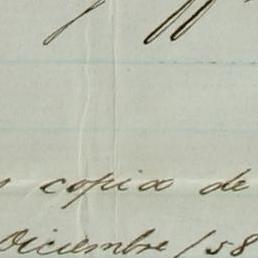 copia de
Diciembre /58